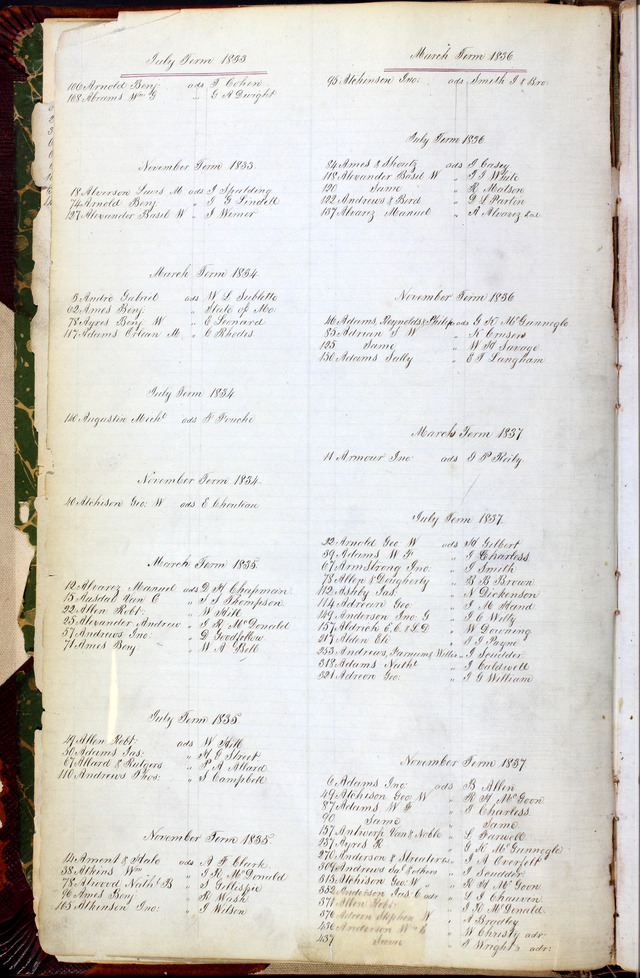 July Term 1833
106 Arnold Benj. ads T Cohen
108 Abrams Wm G " E A Dwight
November Term 1833.
18 Alverson James M ads J Spalding
74 Arnold Benj " J G Lindell
127 Alexander Basil W " J Wimer
March Term 1834
5 Andre Gabriel ads W L Sublette
62 Ames Benj. " State of Mo.
78 Ayres Benj W " E Leonard
187 Adams Orlean M " E Rhodes
July Term 1834
140 Augustin Michl ads F Fouche
November Term 1834.
40 Atchison Geo: W ads E Chouteau
March Term 1835.
12 Alvarez Manuel ads D H Chapman
15 Ausdal Van C " J Thompson
22 Allen Robt: " W Hill
25 Alexander Andrew " J R McDonald
57 Andrews Jno: " D Goodfellow
71 Ames Benj " W A Bell
July Term 1835
49 Allen Robt: ads W Hill
50 Adams Jas: " H G Street
67 Allard & Rutgers " P A Allard
110 Andrews Thos: " S Campbell
November Term 1835
14 Ament & Halo ads A F Clark
38 Atkins Wm " J R McDonald
78 Atwood Nathl B " S Gillespie
96 Ames Benj " R Wash
105 Atkinson Jno: " J Wilson
March Term 1836
95 Atchinson Jno: ads Smith J & Bro
July Term 1836
84 Ames & Shoutz ads J Casey
118 Alexander Basil W " J J White
120 Same " R Matson
122 Andrews & Berd " D L Partin
137 Alvarez Manuel " A Alvarez
November Term 1836
46 Adams, Reynolds & Philip ads G K McGunnegle
85 Adrian S W " K Cruser
125 Same " W H Savage
130 Adams Sally " E T Langham
March Term 1837
11 Armour Jno ads J P Reily
July Term 1837.
32 Arnold Geo W ads H Gilbert
39 Adams W F " J Charless
67 Armstrong Jno: " J Smith
78 Allen & Dougherty " B B Brown
112 Ashby Jas: " N Dickenson
114 Adrean Geo: " J M Hand
149 Anderson Jno. G " J C Welty
157 Aldrich E. E. & L D " W Downing
217 Alden Eli " J J Payne
253 Andrews, Parmums Willis " J Scudder
318 Adams Nathl " J Caldwell
321 Adreon Geo: " J G William
November Term 1837
6 Adams Jno: ads B Allen
49 Atchison Geo: W " R H McGoon
87 Adams W F " J Charless
90 Same " Same
137 Antwerp Van & Noble " L Farwell
237 Ayres R " G K McGunnegle
270 Anderson & " J A Overfelt
309 Andrews & others " J Scudder
315 Atchison Geo: W " R H McGoon
352 Anderson Jas: C adr " L J Chauvin
371 Allen Robt: " J R McDonald
376 Adreon Stephen W " A Bradley
436 Anderson Wm C " W Christy adr:
437 Same " J Wright's adr: